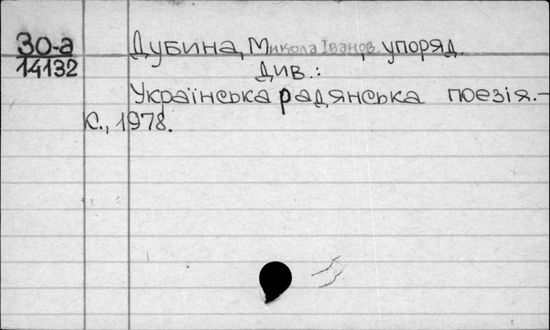 30-а Дубина, Микола Іванов. упоряд.
14132 Див.:
Українська радянська поезія.-
К., 1978.